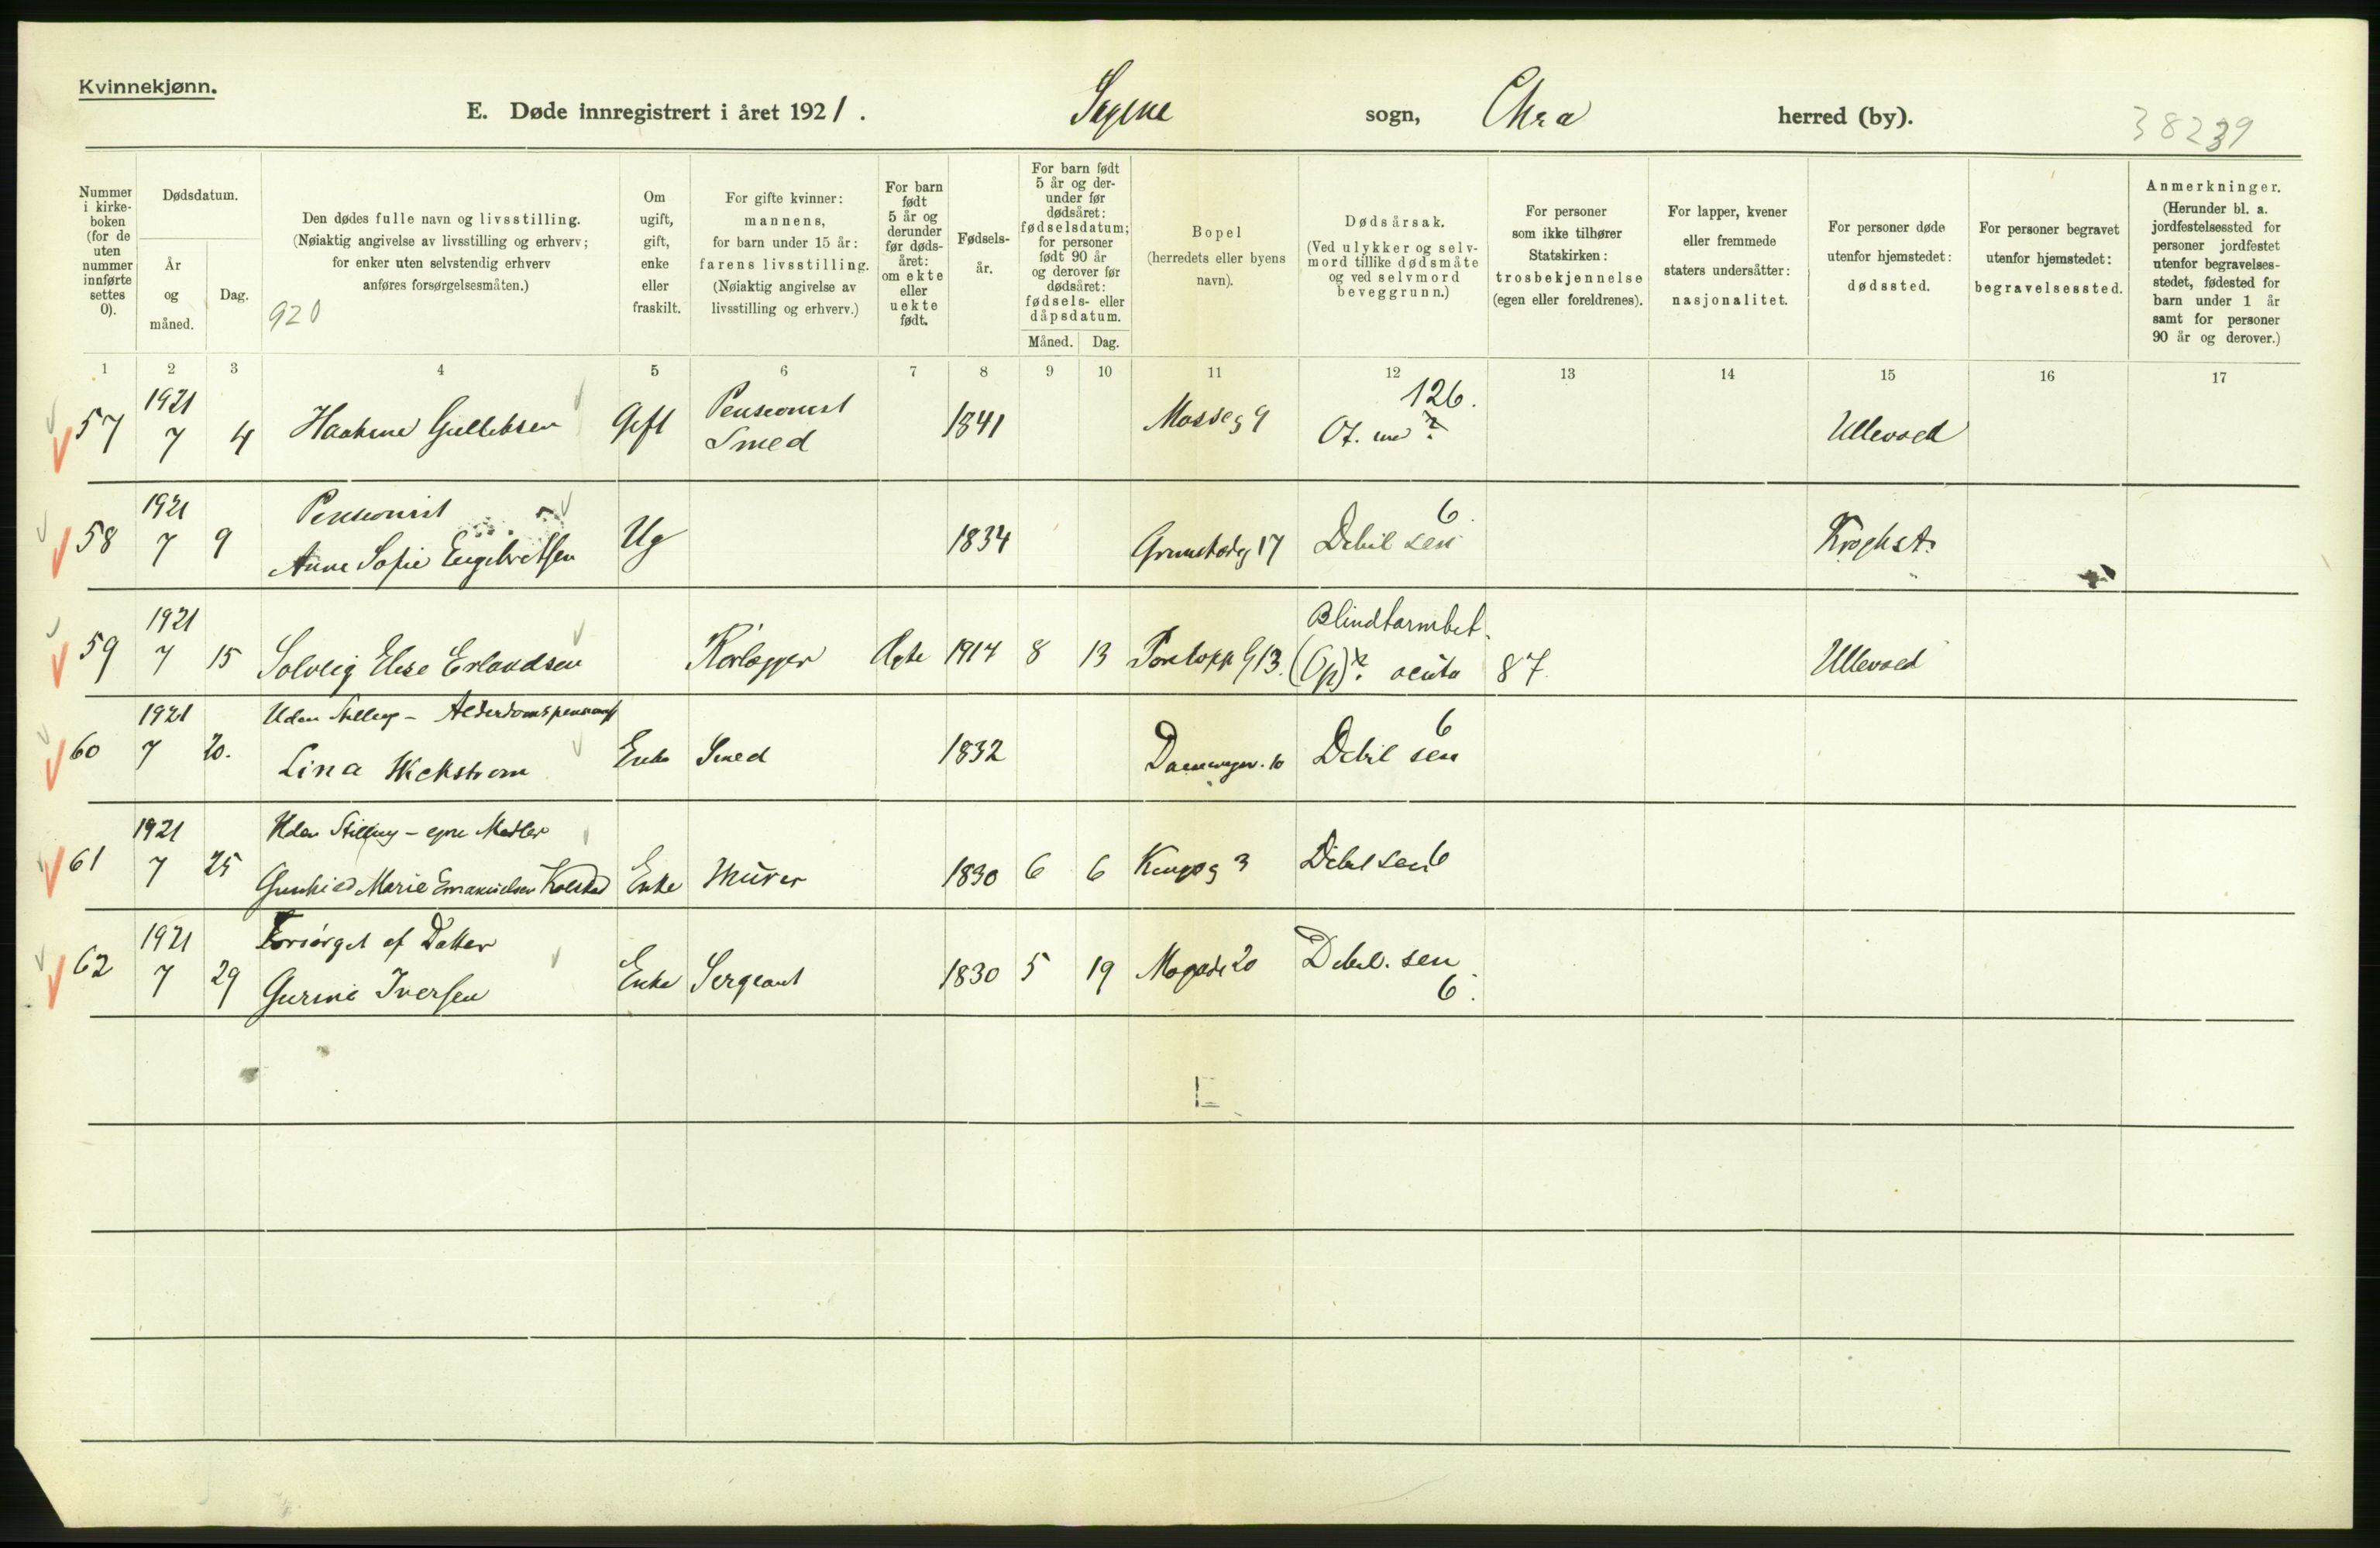 Kvinnekjønn.
E. Døde innregistrert i året 1921. Sagene sogn, Chra herred (by).
38239
Nummer i kirke-boken (for de uten nummer innførte settes 0).
Dødsdatum.
År og måned.
Dag.
Den dødes fulle navn og livsstilling.
(Nøiaktig angivelse av livsstilling og erhverv;
for enker uten selvstendig erhverv
anføres forsørgelsesmåten.)
920
Om ugift, gift, enke eller fraskilt.
For gifte kvinner: mannens, for barn under 15 år: farens livsstilling. (Nøiaktig angivelse av livsstilling og erhverv.)
For barn født 5 år og derunder før døds-året: om ekte eller uekte født.
Fødsels-år.
For barn født 5 år og der-under før dødsåret: fødselsdatum; for personer født 90 år og derover før dødsåret: fødsels- eller dåpsdatum.
Måned. Dag.
Bopel (herredets eller byens navn).
Dødsårsak. (Ved ulykker og selv-mord tillike dødsmåte og ved selvmord beveggrunn.)
For personer som ikke tilhører Statskirken: trosbekjennelse (egen eller foreldrenes).
For lapper, kvener eller fremmede staters undersåtter: nasjonalitet.
For personer døde utenfor hjemstedet: dødssted.
For personer begravet utenfor hjemstedet: begravelsessted.
Anmerkninger. (Herunder bl. a. jordfestelsessted for personer jordfestet utenfor begravelses-stedet, fødested for barn under 1 år samt for personer 90 år og derover.)
1 2 3 4 5 6 7 8 9 10 11 12 13 14 15 16 17
1921 Pensionist 126.
57 7 4 Gulliksen Gift Smed 1841 Mosseg 9 Ullevaal
1921 Pensionist 6.
58 7 9 Anne Sofie Engebretsen Ug 1834 17 Debil sen Kroghst.
1921 Blindtarmbet.
59 7 15 Solveig Elise Erlandsen Rørlægger Ægte 1914 8 13 13. (Op)? acuta 87. Ullevaal
1921 Uden Stilling - Alderdomspension 6
60 7 20. Lina Enke Smed 1832 10 Debil sen
1921 Uden Stilling - egne Midler
61 7 25 Gunhild Marie Emanuelsen Kolstad Enke Murer 1830 6 6 3 Debil sen 6
1921 Forsørget af Datter
62 7 29 Gurine Iversen Enke Sergeant 1830 5 19 20 Debil. sen
6.